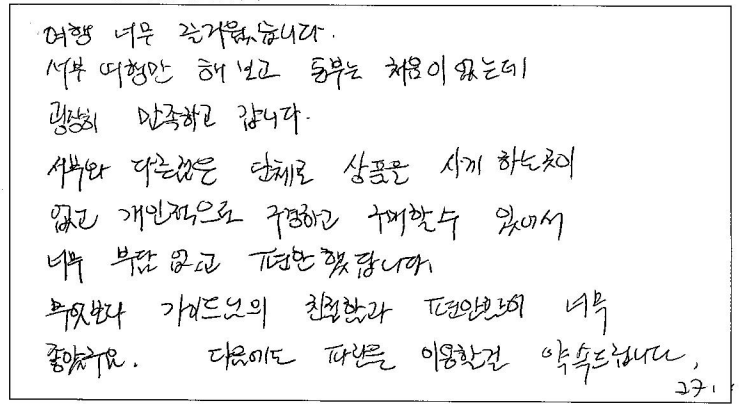 여행 너무 즐거웠습니다.
서부 여행만 해 보고 동부는 처음이 였는데
굉장히 만족하고 갑니다.
서부와 다른점은 단체로 상품을 사게 하는곳이
없고 개인적으로 구경하고 구매할수 있어서
너무 부담 없고 편안 했답니다.
무엇보다 가이드님의 친절함과 편안함이 너무
좋았구요. 다음에도 파란을 이용할걸 약속드립니다.
271.